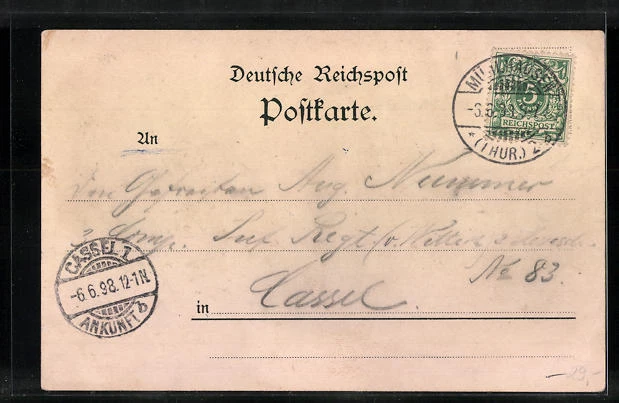 Deutsche Reichspost
Postkarte.
MÜHLHAUSEN
-6.6.98
* (THÜR.) 2
5
REICHSPOST
An
Den Gefreiten Aug. Nummer
3 Comp. Inf. Regt. (v. Wittich 3
No 83.
in Cassel.
CASSEL 1
-6.6.98.12-1N.
ANKUNFT b